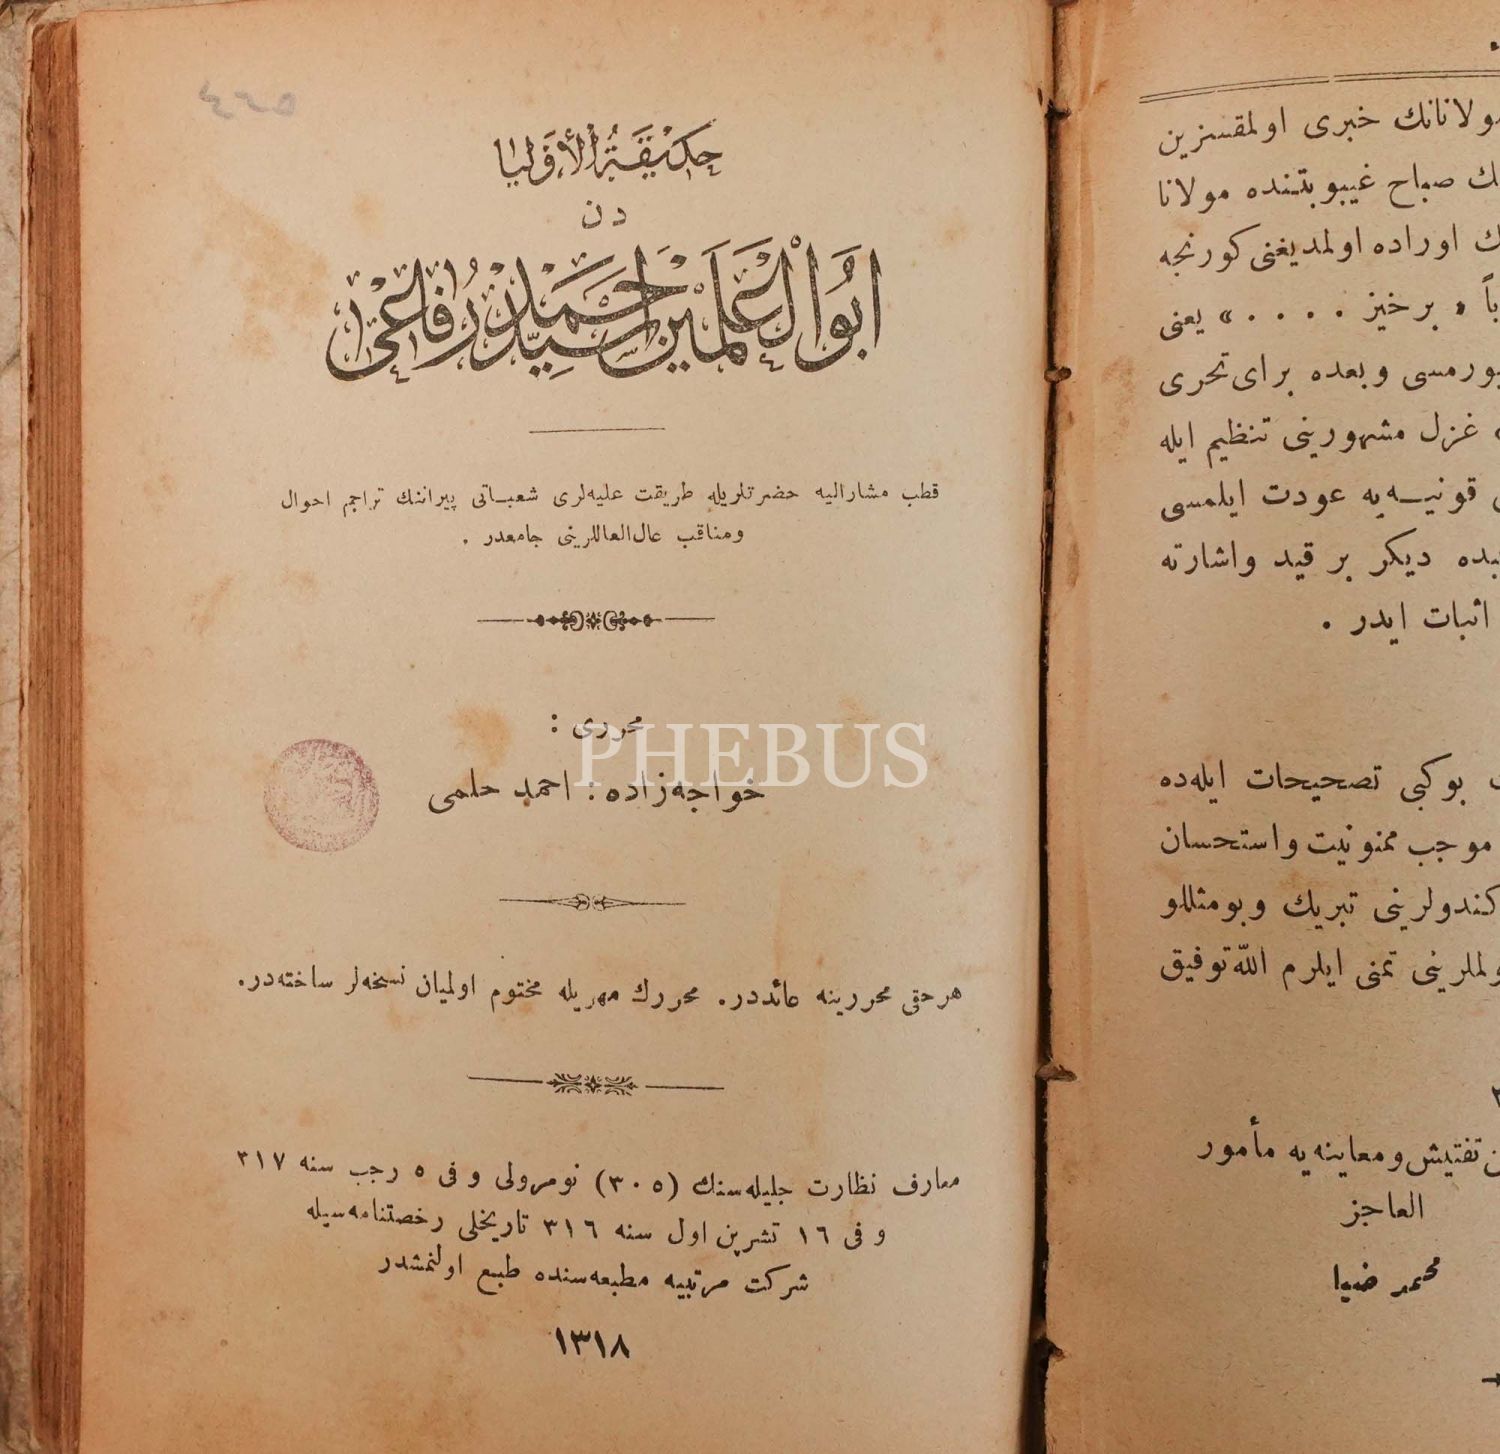 حديقة الأوليا
دن
ابوالعلمين سيد احمد رفاعى
قطب مشاراليه حضرتلريله طريقت عليه‌لرى شعباتى پيراننك تراجم احوال
ومناقب عال‌العاللرينى جامعدر .
محررى :
خواجه‌زاده : احمد حلمى
PHEBUS
هر حقى محررينه عائددر. محررك مهريله مختوم اولميان نسخه‌لر ساخته‌در.
معارف نظارت جليله‌سنك (٣٠٥) نومرولى و فى ٥ رجب سنه ٣١٧
و فى ١٦ تشرين اول سنه ٣١٦ تاريخلى رخصتنامه‌سيله
شركت مرتبيه مطبعه‌سنده طبع اولنمشدر
١٣١٨
مولانانك خبرى اولمقسزين
صباح غيبوبتنده مولانا
اوراده اولمديغنى كورنجه
« برخيز . . . . » يعنى
وبعده براى تحرى
غزل مشهورينى تنظيم ايله
قونيه‌يه عودت ايلمسى
ديكر بر قيد واشارته
اثبات ايدر .
بوكبى تصحيحات ايله‌ده
موجب ممنونيت واستحسان
كندولرينى تبريك وبومثللو
تمنى ايلرم الله توفيق
تفتيش ومعاينه‌يه مأمور
العاجز
محمد ضيا